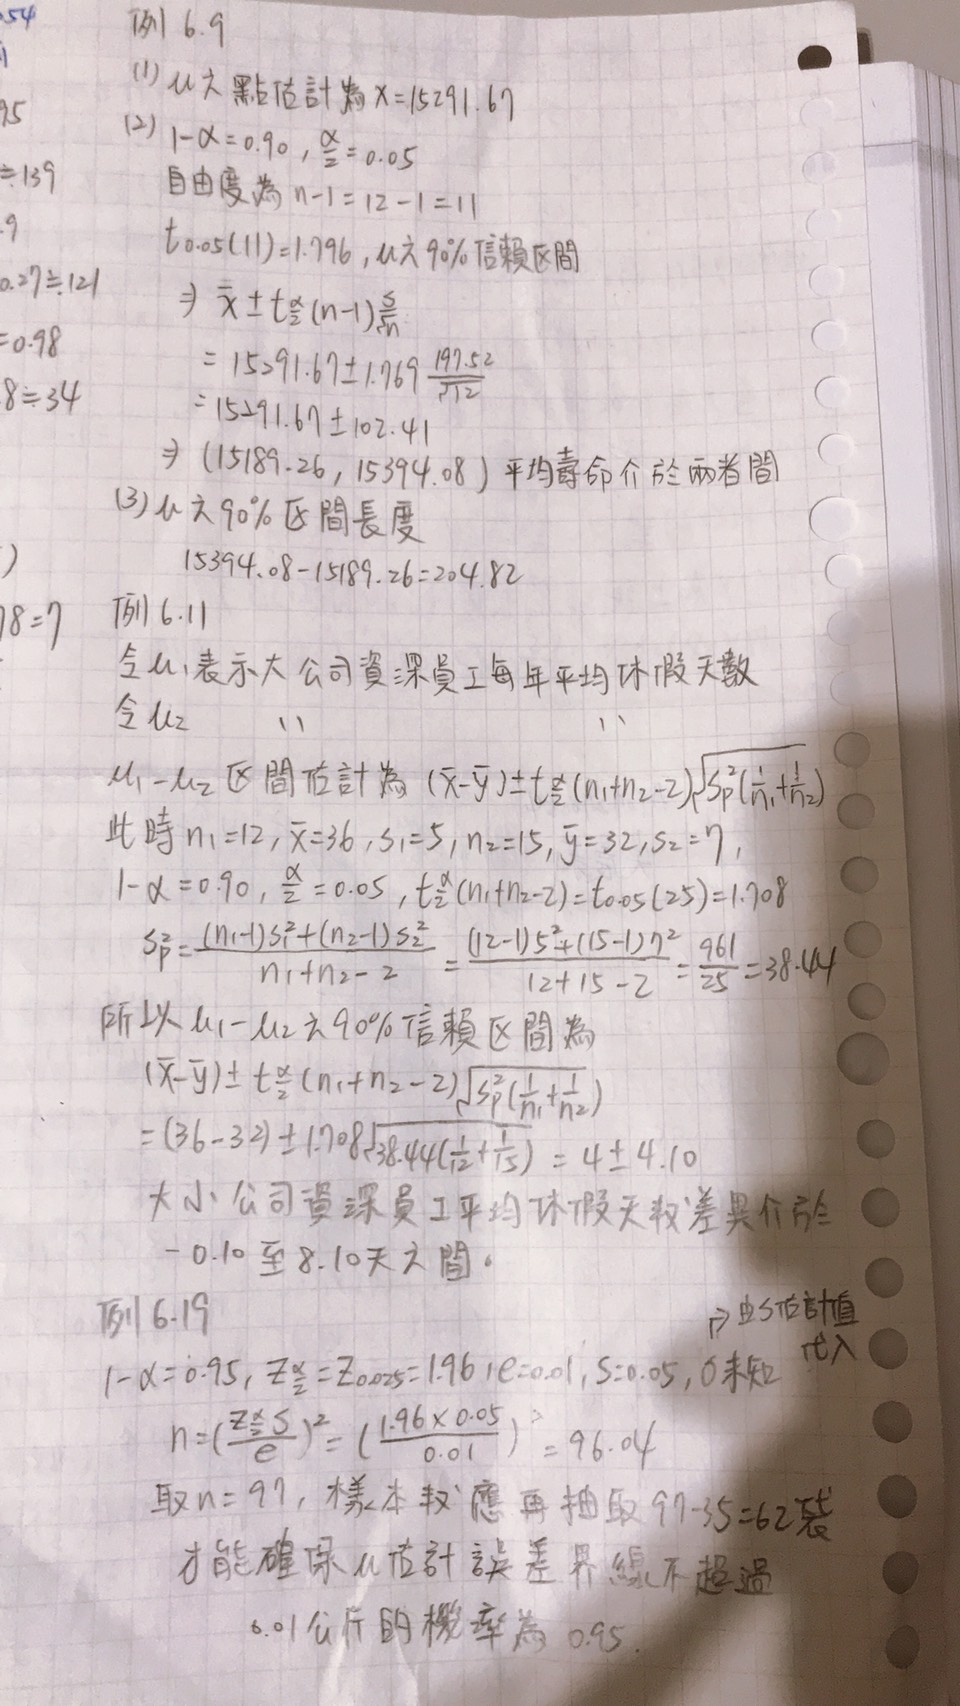 54
95
≒139
.9
0.27≒121
=0.98
8≒34
)
78=7
例6.9
(1) μ之點估計為x=15291.67
(2) 1-α=0.90, α/2=0.05
自由度為n-1=12-1=11
t0.05(11)=1.796, μ之90%信賴区間
⇒ x̄±tα/2(n-1) s/√n
=15291.67±1.769 197.52/√12
=15291.67±102.41
⇒ (15189.26, 15394.08) 平均壽命介於兩者間
(3) μ之90%区間長度
15394.08-15189.26=204.82
例6.11
令μ1表示大公司資深員工每年平均休假天數
令μ2 〃 〃
μ1-μ2区間估計為 (x̄-ȳ)±tα/2(n1+n2-2)√Sp²(1/n1+1/n2)
此時n1=12, x̄=36, s1=5, n2=15, ȳ=32, s2=7,
1-α=0.90, α/2=0.05, tα/2(n1+n2-2)=t0.05(25)=1.708
Sp²=(n1-1)S1²+(n2-1)S2²/n1+n2-2=(12-1)5²+(15-1)7²/12+15-2=961/25=38.44
所以μ1-μ2之90%信賴区間為
(x̄-ȳ)±tα/2(n1+n2-2)√Sp²(1/n1+1/n2)
=(36-32)±1.708√38.44(1/12+1/15)=4±4.10
大小公司資深員工平均休假天数差異介於
-0.10至8.10天之間。
例6.19
↱由S估計值
代入
1-α=0.95, Zα/2=Z0.025=1.96, e=0.01, S=0.05, σ未知
n=(Zα/2 S/e)²=(1.96×0.05/0.01)²=96.04
取n=97, 樣本数應再抽取97-35=62袋
才能確保μ估計誤差界線不超過
0.01公斤的機率為0.95.